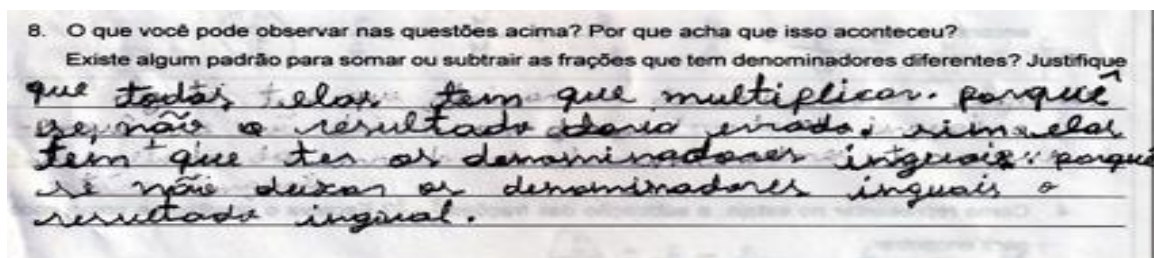 8. O que você pode observar nas questões acima? Por que acha que isso aconteceu?
Existe algum padrão para somar ou subtrair as frações que tem denominadores diferentes? Justifique
que todas elas tem que multiplicar. porquê
se não o resultado daria errado, sim elas
tem que ter os denominadores inguais: porquê
se não deixar os denominadores inguais o
resultado ingual.